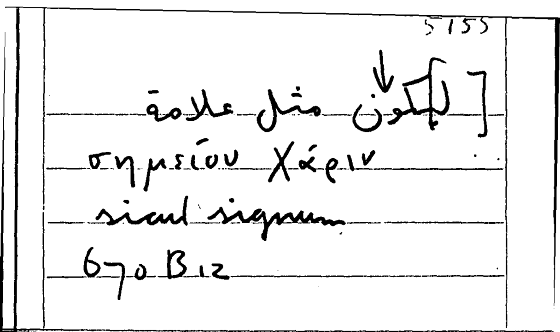 5155
[ليكون] مثل علامة
σημείου χάριν
sicut signum
670 B 12